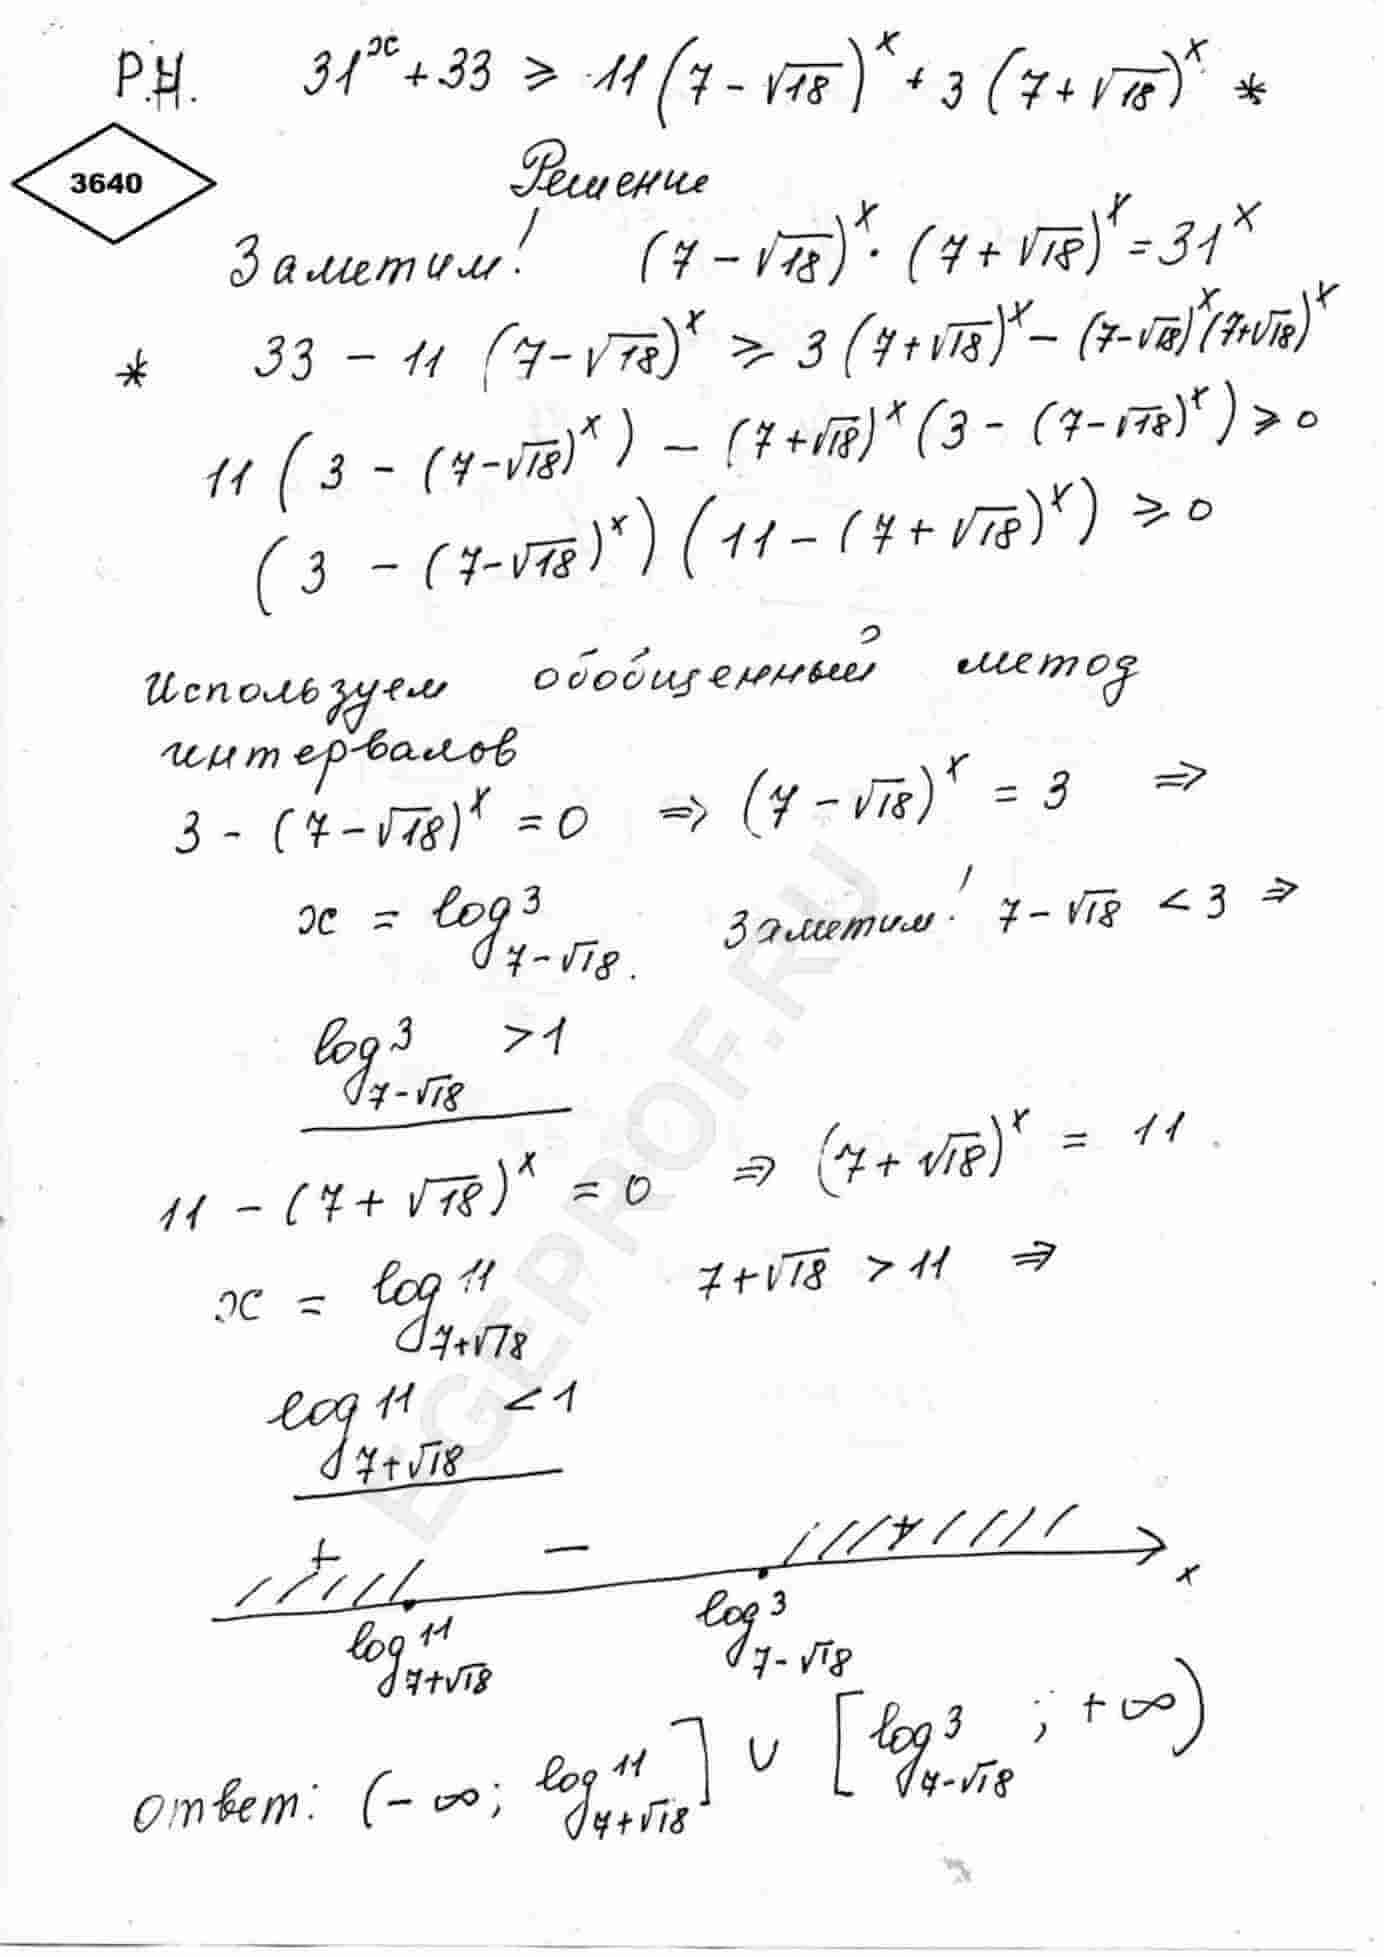 Р.Н. 31^x + 33 ⩾ 11 (7 - √18)^x + 3 (7 + √18)^x *
3640
Решение
Заметим! (7 - √18)^x · (7 + √18)^x = 31^x
* 33 - 11 (7 - √18)^x ⩾ 3 (7 + √18)^x - (7 - √18)^x (7 + √18)^x
11 (3 - (7 - √18)^x) - (7 + √18)^x (3 - (7 - √18)^x) ⩾ 0
(3 - (7 - √18)^x) (11 - (7 + √18)^x) ⩾ 0
Используем обобщенный метод
интервалов
3 - (7 - √18)^x = 0 ⇒ (7 - √18)^x = 3 ⇒
x = log_{7-√18} 3. Заметим! 7 - √18 < 3 ⇒
log_{7-√18} 3 > 1
11 - (7 + √18)^x = 0 ⇒ (7 + √18)^x = 11
x = log_{7+√18} 11 7 + √18 > 11 ⇒
log_{7+√18} 11 < 1
+ − + x
log_{7+√18} 11 log_{7-√18} 3
ответ: (-∞; log_{7+√18} 11] ∪ [log_{7-√18} 3; +∞)
EGEPROF.RU